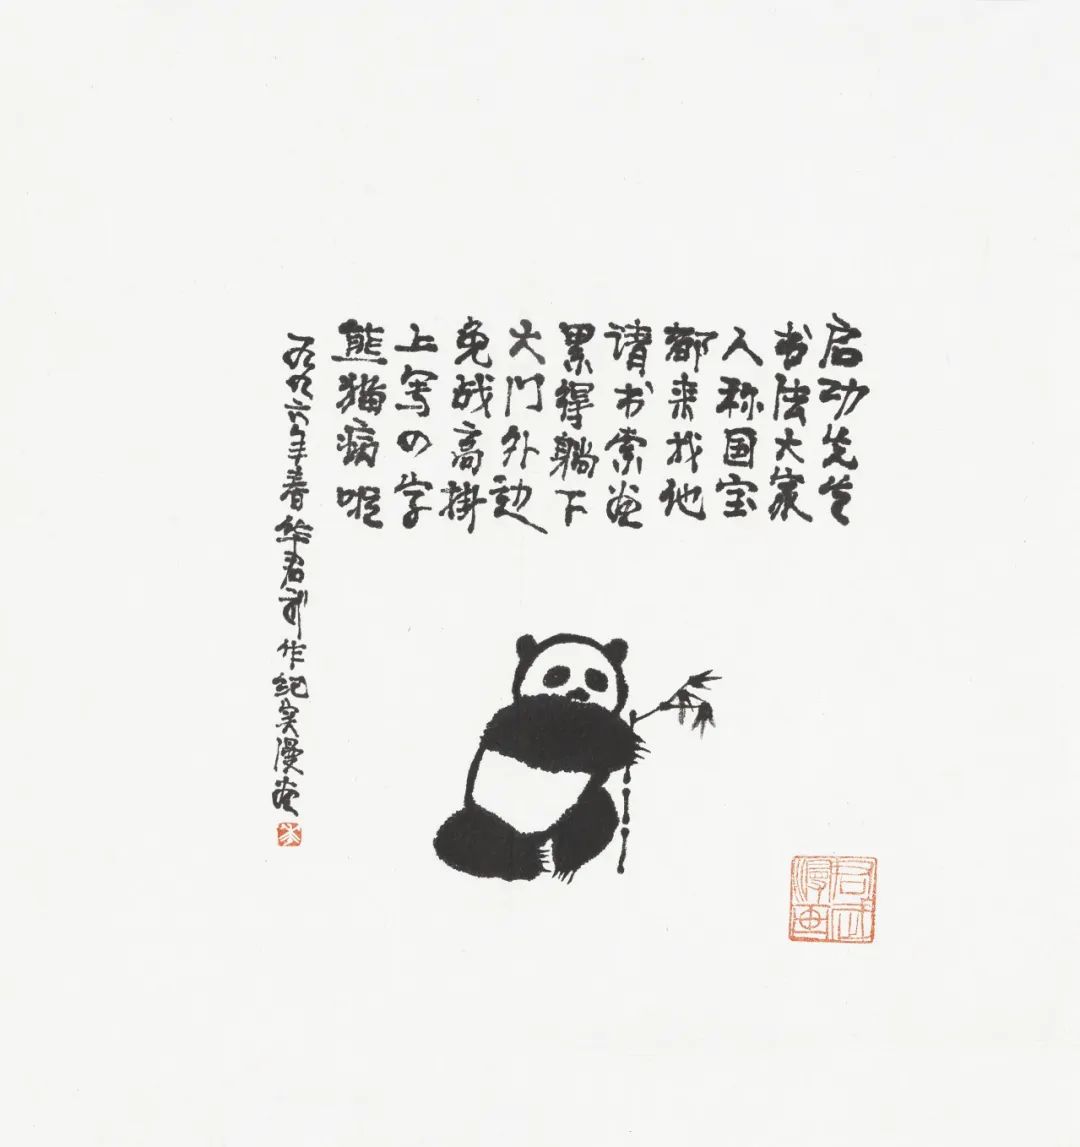 启功先生
书法大家
人称国宝
都来找他
请书索画
累得躺下
大门外边
免战高掛
上写四字
熊猫病啦
一九九六年春华君武作纪实漫画
君武
漫画